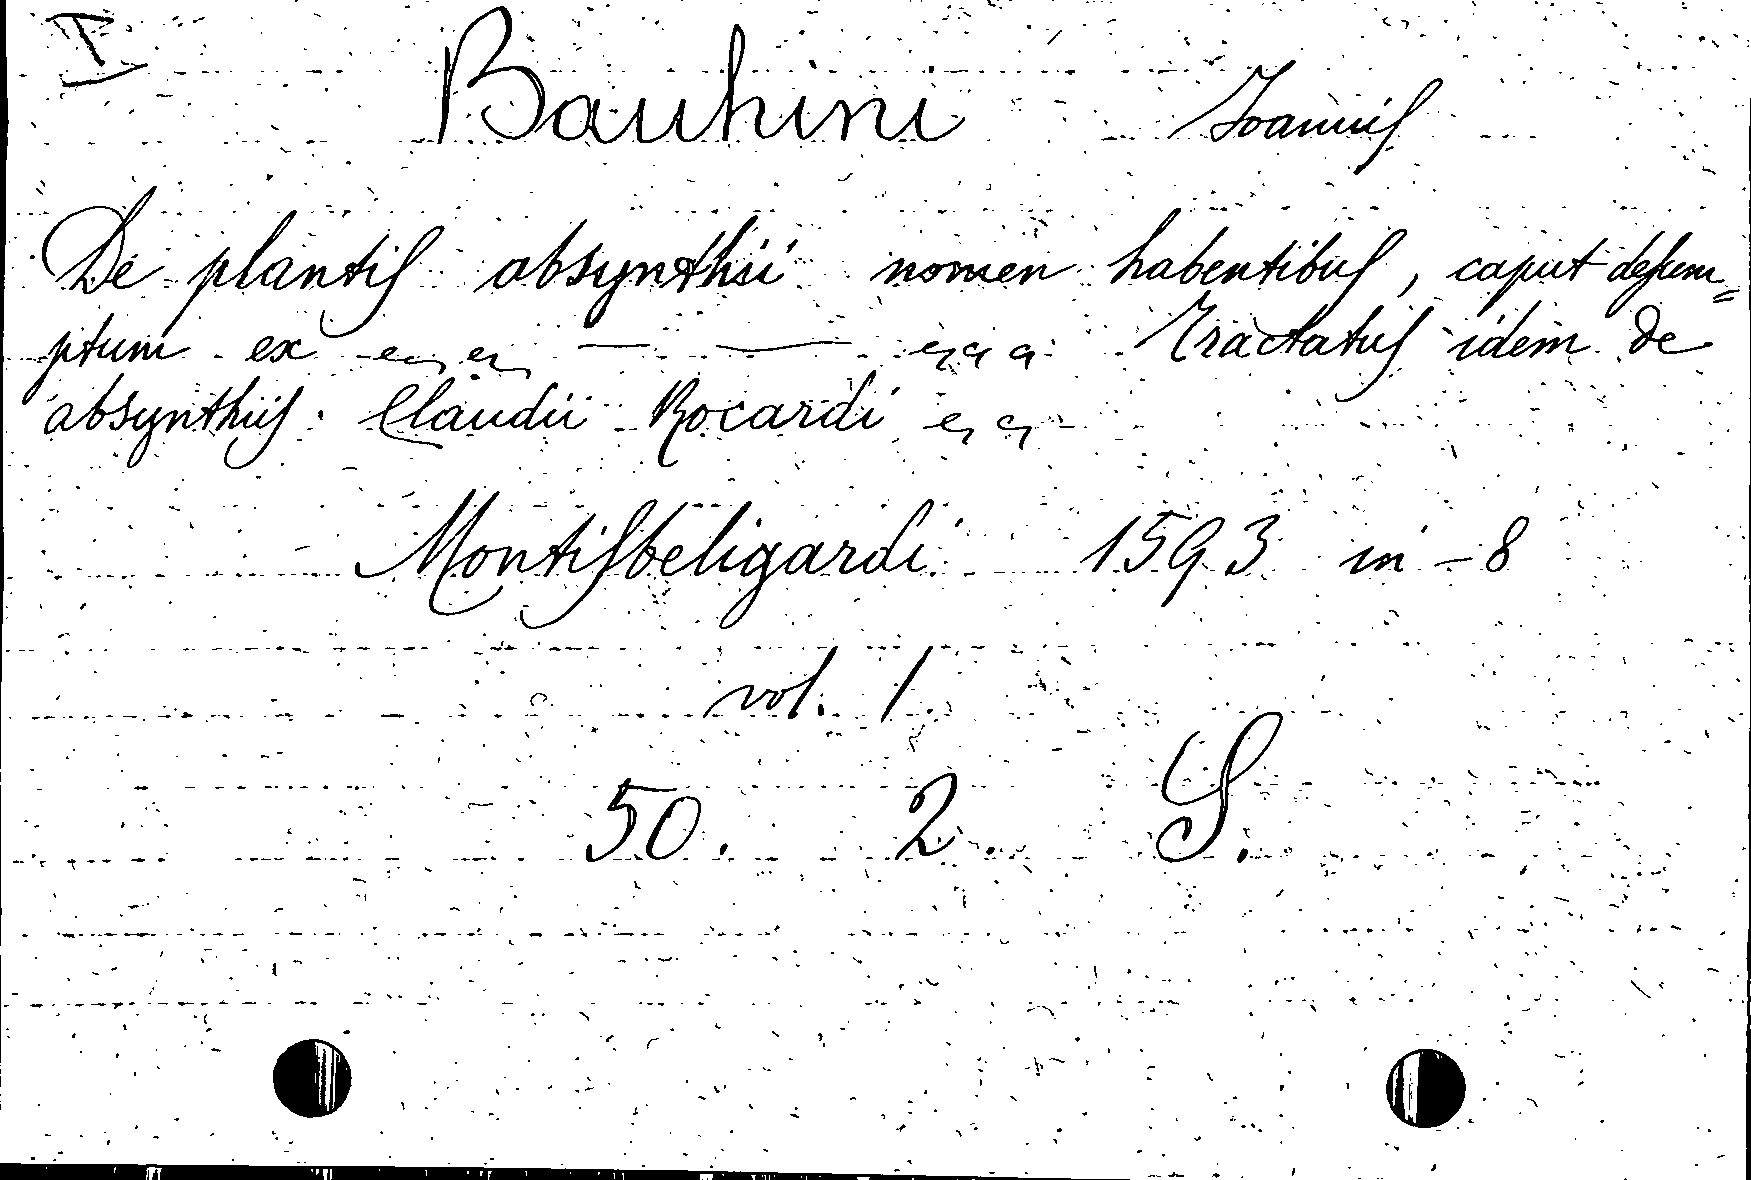 I Bauhini Joannis
De plantis absynthii nomen habentibus, caput desum=
ptum ex — — Tractatus idem de
absynthiis. Claudii Rocardi
Montisbeligardi 1593 in-8
vol. 1.
50. 2. S.